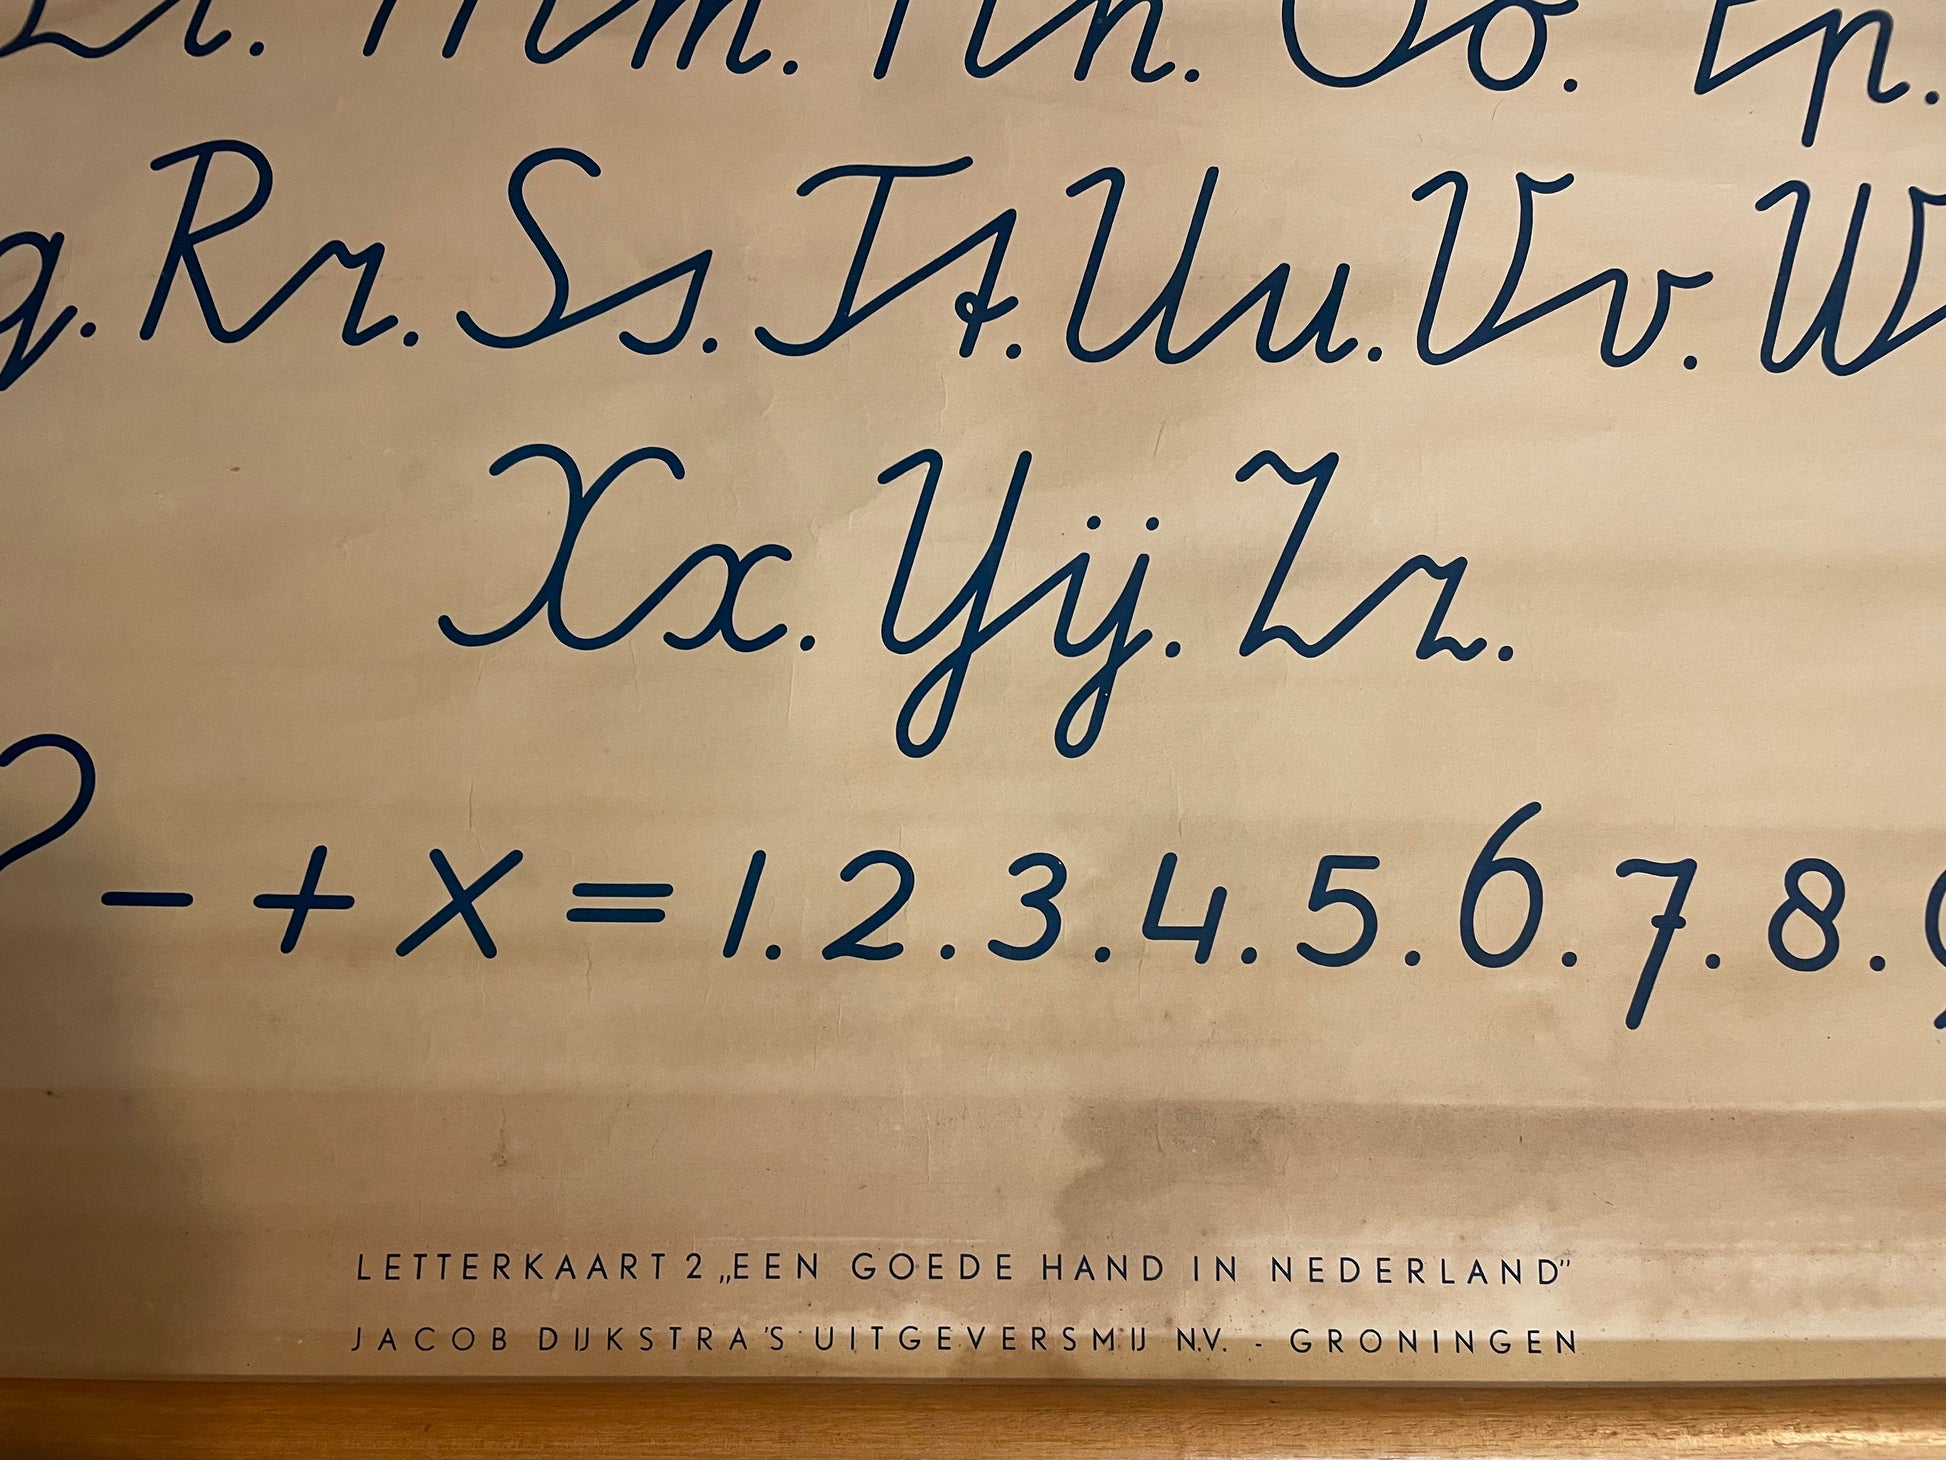 Ll. Mm. Nn. Oo. Pp.
q. Rr. Ss. Tt. Uu. Vv. W
Xx. Yij. Zz.
? - + x = 1. 2. 3. 4. 5. 6. 7. 8. 9
LETTERKAART 2 „EEN GOEDE HAND IN NEDERLAND”
JACOB DIJKSTRA'S UITGEVERSMIJ N.V. - GRONINGEN